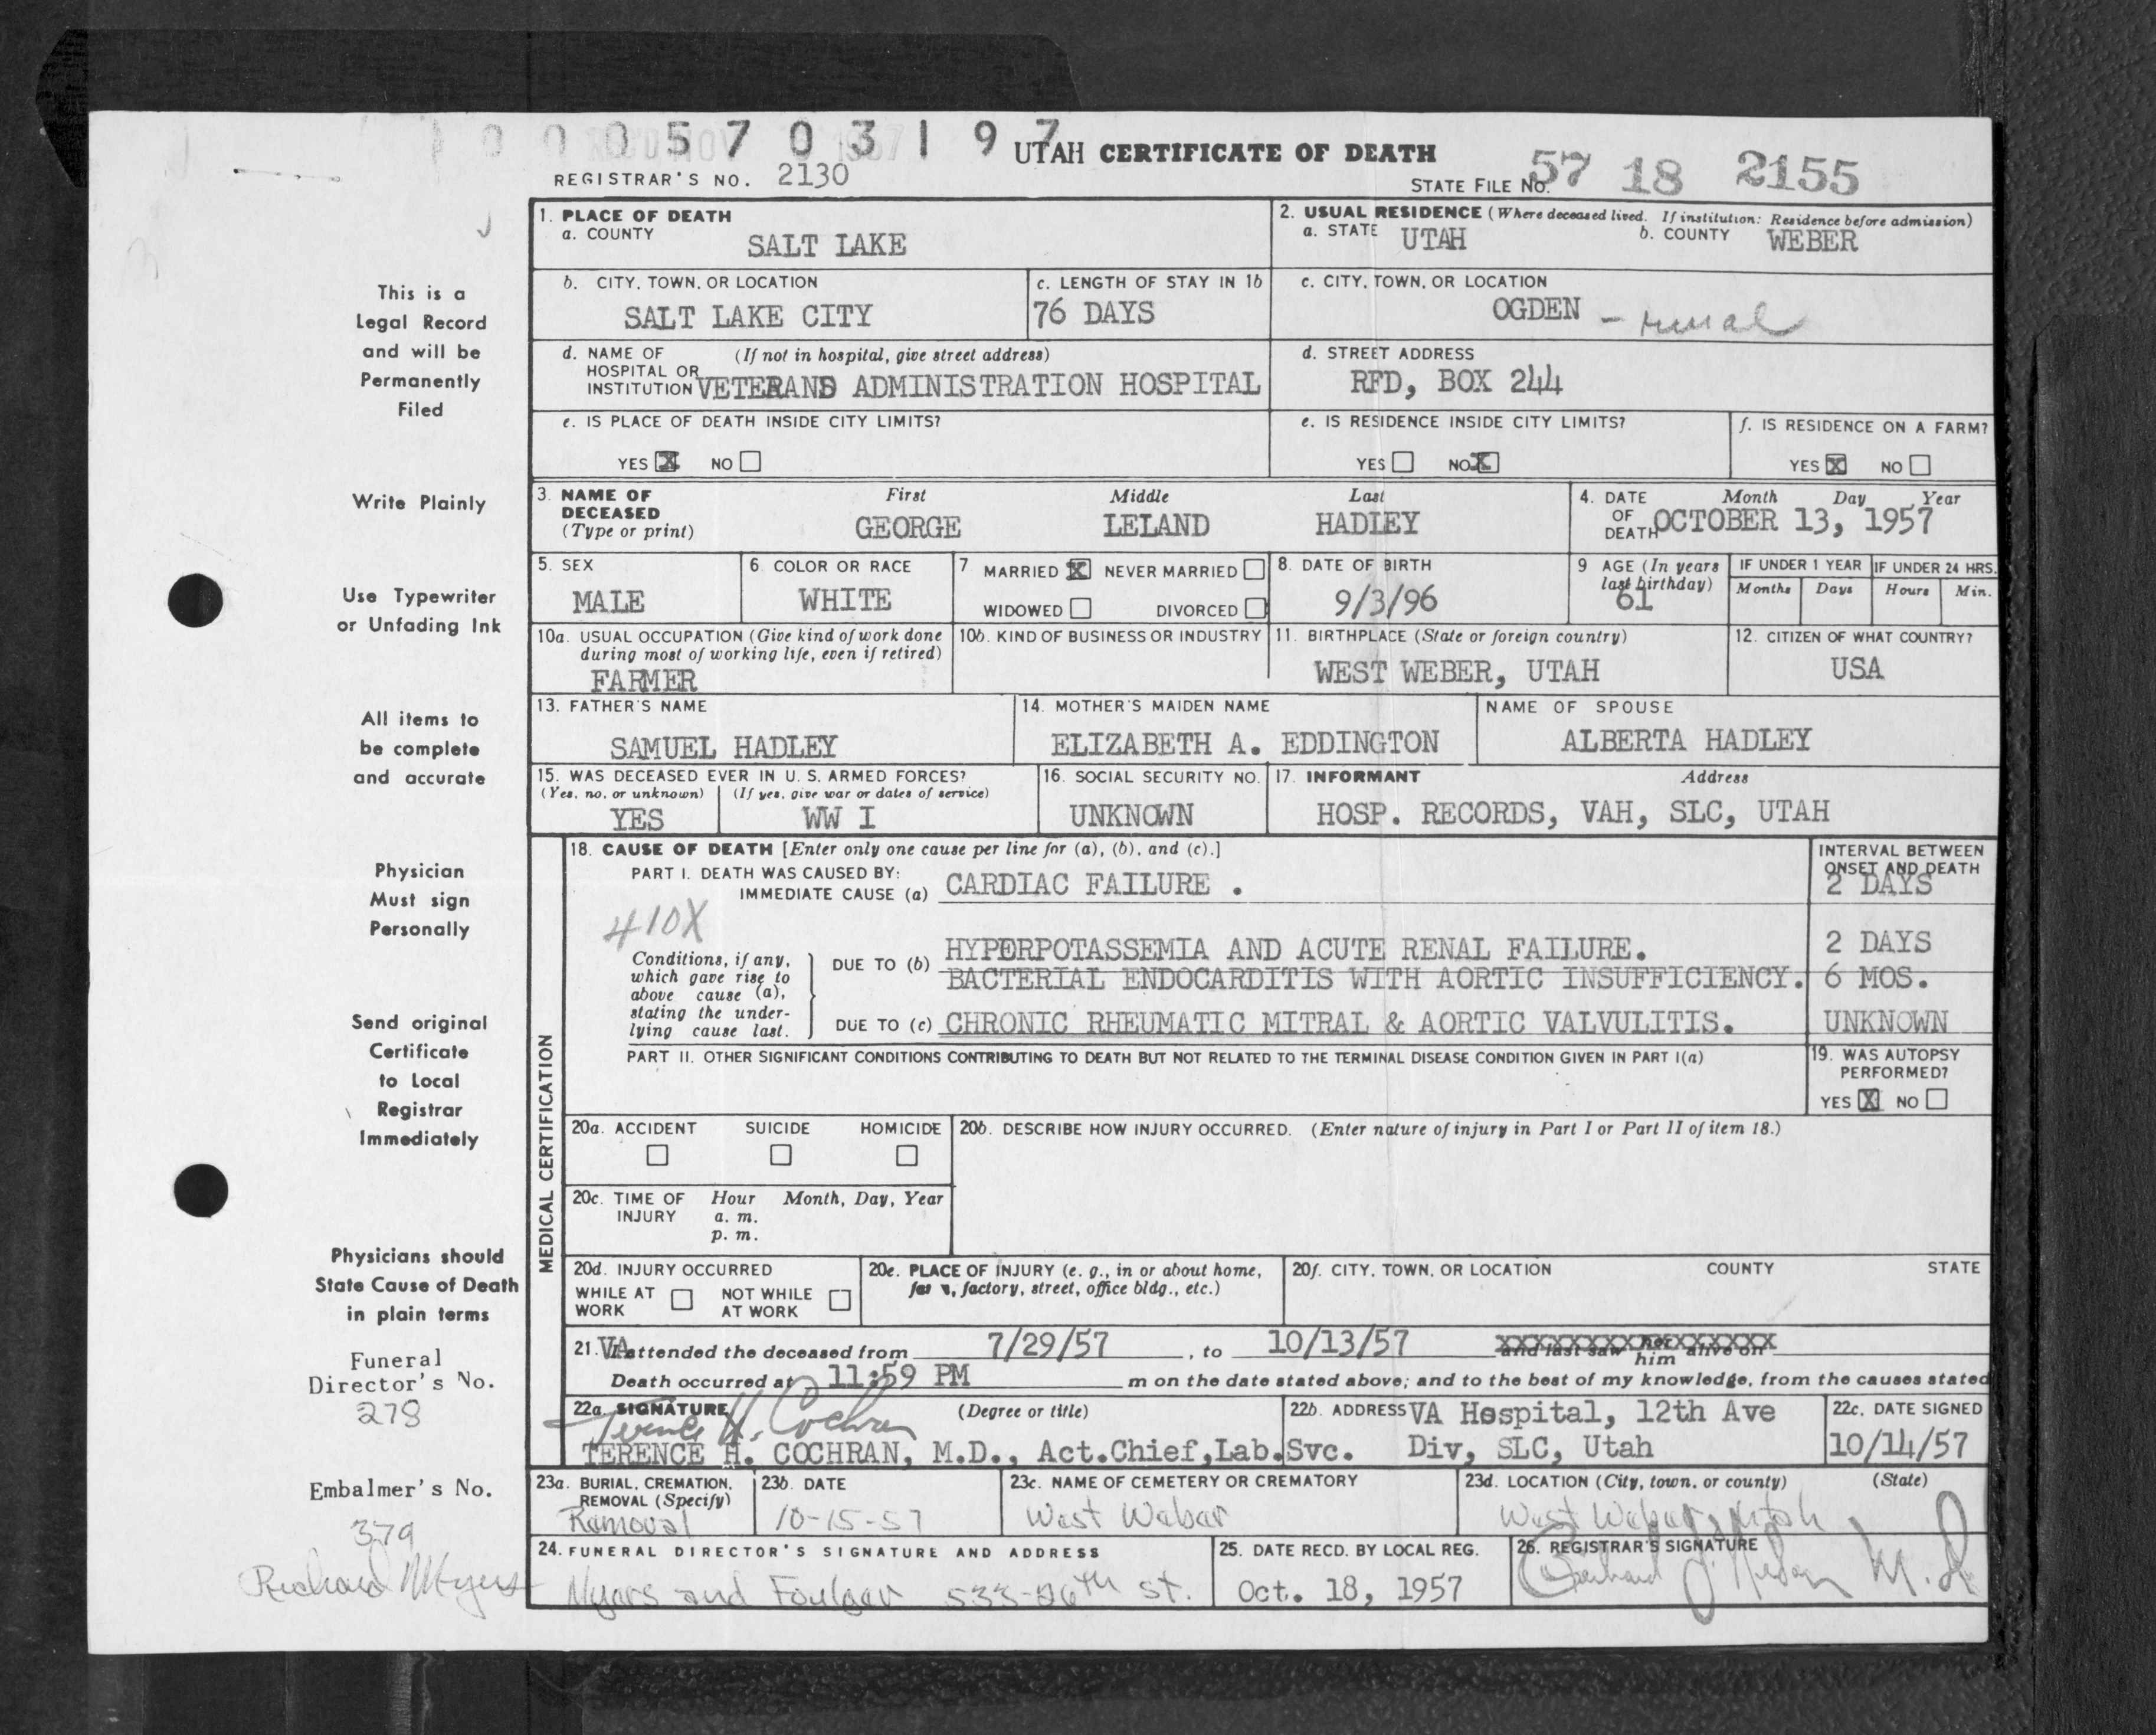 1 0 0 0 5 7 0 3 1 9 7
UTAH CERTIFICATE OF DEATH
REGISTRAR'S NO. 2130
STATE FILE NO. 57 18 2155
This is a
Legal Record
and will be
Permanently
Filed
Write Plainly
Use Typewriter
or Unfading Ink
All items to
be complete
and accurate
Physician
Must sign
Personally
Send original
Certificate
to Local
Registrar
Immediately
Physicians should
State Cause of Death
in plain terms
Funeral
Director's No.
278
Embalmer's No.
379
Richard Myers
1. PLACE OF DEATH
a. COUNTY
SALT LAKE
2. USUAL RESIDENCE (Where deceased lived. If institution: Residence before admission)
a. STATE UTAH b. COUNTY WEBER
b. CITY, TOWN, OR LOCATION
SALT LAKE CITY
c. LENGTH OF STAY IN 1b
76 DAYS
c. CITY, TOWN, OR LOCATION
OGDEN - rural
d. NAME OF (If not in hospital, give street address)
HOSPITAL OR
INSTITUTION VETERANS ADMINISTRATION HOSPITAL
d. STREET ADDRESS
RFD, BOX 244
e. IS PLACE OF DEATH INSIDE CITY LIMITS?
YES X NO
e. IS RESIDENCE INSIDE CITY LIMITS?
YES NO X
f. IS RESIDENCE ON A FARM?
YES X NO
3. NAME OF First Middle Last
DECEASED
(Type or print) GEORGE LELAND HADLEY
4. DATE Month Day Year
OF
DEATH OCTOBER 13, 1957
5. SEX
MALE
6. COLOR OR RACE
WHITE
7. MARRIED X NEVER MARRIED
WIDOWED DIVORCED
8. DATE OF BIRTH
9/3/96
9 AGE (In years
last birthday)
61
IF UNDER 1 YEAR
Months Days
IF UNDER 24 HRS.
Hours Min.
10a. USUAL OCCUPATION (Give kind of work done
during most of working life, even if retired)
FARMER
10b. KIND OF BUSINESS OR INDUSTRY
11. BIRTHPLACE (State or foreign country)
WEST WEBER, UTAH
12. CITIZEN OF WHAT COUNTRY?
USA
13. FATHER'S NAME
SAMUEL HADLEY
14. MOTHER'S MAIDEN NAME
ELIZABETH A. EDDINGTON
NAME OF SPOUSE
ALBERTA HADLEY
15. WAS DECEASED EVER IN U. S. ARMED FORCES?
(Yes, no, or unknown) (If yes, give war or dates of service)
YES WW I
16. SOCIAL SECURITY NO.
UNKNOWN
17. INFORMANT Address
HOSP. RECORDS, VAH, SLC, UTAH
MEDICAL CERTIFICATION
18. CAUSE OF DEATH [Enter only one cause per line for (a), (b), and (c).]
INTERVAL BETWEEN
ONSET AND DEATH
PART I. DEATH WAS CAUSED BY:
IMMEDIATE CAUSE (a) CARDIAC FAILURE . 2 DAYS
410X
Conditions, if any,
which gave rise to
above cause (a),
stating the under-
lying cause last.
DUE TO (b) HYPERPOTASSEMIA AND ACUTE RENAL FAILURE. 2 DAYS
BACTERIAL ENDOCARDITIS WITH AORTIC INSUFFICIENCY. 6 MOS.
DUE TO (c) CHRONIC RHEUMATIC MITRAL & AORTIC VALVULITIS. UNKNOWN
PART II. OTHER SIGNIFICANT CONDITIONS CONTRIBUTING TO DEATH BUT NOT RELATED TO THE TERMINAL DISEASE CONDITION GIVEN IN PART I(a)
19. WAS AUTOPSY
PERFORMED?
YES X NO
20a. ACCIDENT SUICIDE HOMICIDE
20b. DESCRIBE HOW INJURY OCCURRED. (Enter nature of injury in Part I or Part II of item 18.)
20c. TIME OF Hour Month, Day, Year
INJURY a. m.
p. m.
20d. INJURY OCCURRED
WHILE AT WORK NOT WHILE AT WORK
20e. PLACE OF INJURY (e. g., in or about home,
farm, factory, street, office bldg., etc.)
20f. CITY, TOWN, OR LOCATION COUNTY STATE
21. VA attended the deceased from 7/29/57, to 10/13/57 and last saw her him alive on
Death occurred at 11:59 PM m on the date stated above; and to the best of my knowledge, from the causes stated
22a. SIGNATURE (Degree or title)
Terence H. Cochran
TERENCE H. COCHRAN, M.D., Act.Chief,Lab.Svc.
22b. ADDRESS VA Hospital, 12th Ave
Div, SLC, Utah
22c. DATE SIGNED
10/14/57
23a. BURIAL, CREMATION,
REMOVAL (Specify)
Removal
23b. DATE
10-15-57
23c. NAME OF CEMETERY OR CREMATORY
West Weber
23d. LOCATION (City, town, or county) (State)
West Weber, Utah
24. FUNERAL DIRECTOR'S SIGNATURE AND ADDRESS
Myers and Foulger 533-26th st.
25. DATE RECD. BY LOCAL REG.
Oct. 18, 1957
26. REGISTRAR'S SIGNATURE
M.D.